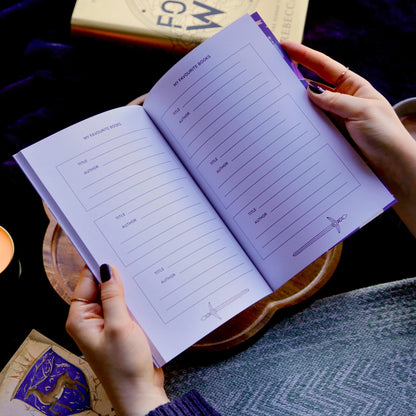 FO W
REBECCA
MY FAVOURITE BOOKS
TITLE
AUTHOR
TITLE
AUTHOR
TITLE
AUTHOR
MY FAVOURITE BOOKS
TITLE
AUTHOR
TITLE
AUTHOR
TITLE
AUTHOR